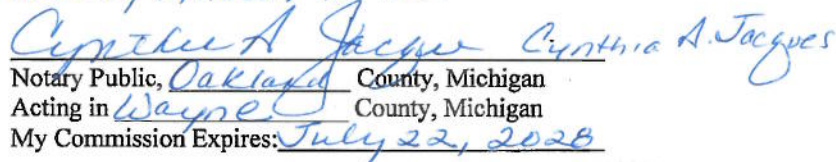 Cynthia A Jacques Cynthia A. Jacques
Notary Public, Oakland County, Michigan
Acting in Wayne County, Michigan
My Commission Expires: July 22, 2028